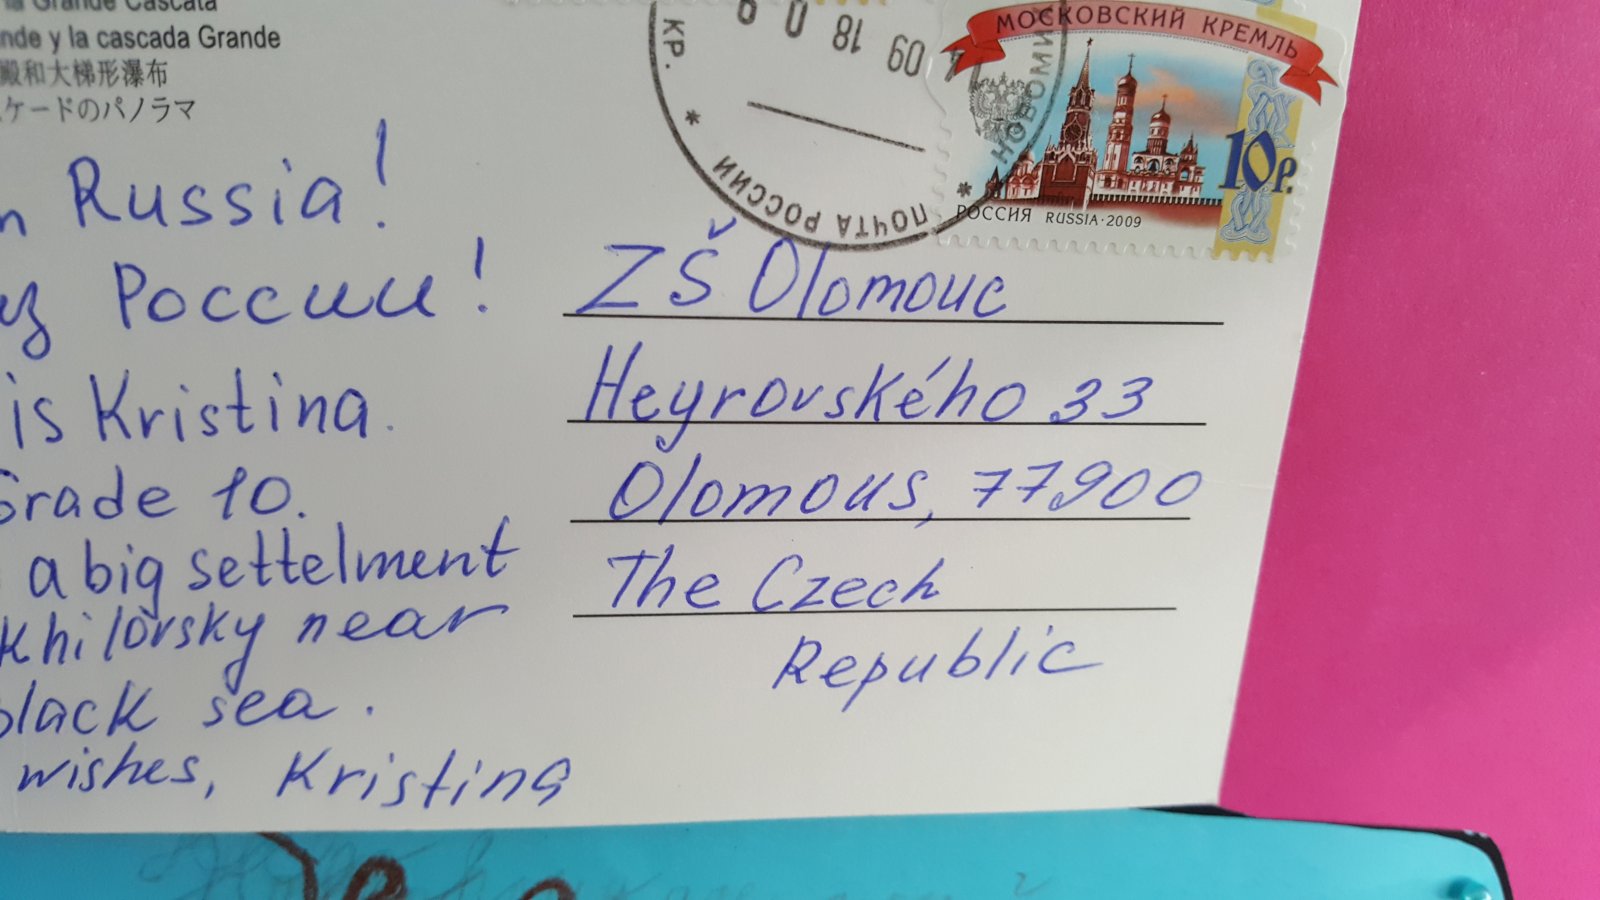 la Grande Cascata
nde y la cascada Grande
殿和大梯形瀑布
ケードのパノラマ
КР. * ПОЧТА РОССИИ * НОВОМИ
09 18 0
МОСКОВСКИЙ КРЕМЛЬ
10р.
РОССИЯ RUSSIA·2009
n Russia!
из России!
is Kristina.
Grade 10.
a big settelment
khilovsky near
black sea.
wishes, Kristina
ZŠ Olomouc
Heyrovského 33
Olomous, 77900
The Czech
Republic